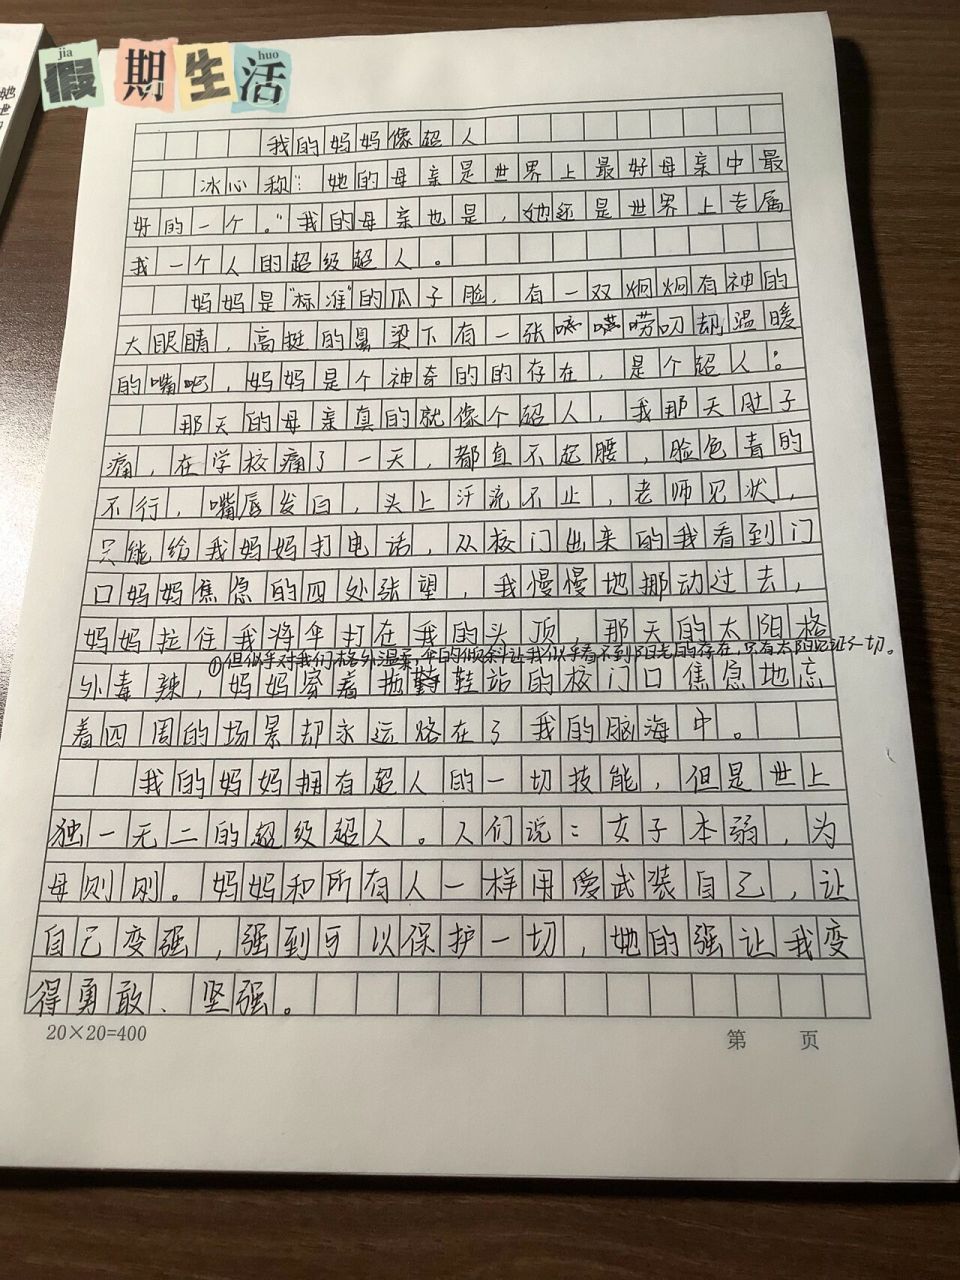 jia huo
假期生活
我的妈妈像超人
冰心称:她的母亲是世界上最好母亲中最
好的一个。"我的母亲也是,她还是世界上专属
我一个人的超级超人。
妈妈是"标准"的瓜子脸,有一双炯炯有神的
大眼睛,高挺的鼻梁下有一张唠叨却温暖
的嘴吧,妈妈是个神奇的的存在,是个超人:
那天的母亲真的就像个超人,我那天肚子
痛,在学校痛了一天,都直不起腰,脸色青的
不行,嘴唇发白,头上汗流不止,老师见状,
只能给我妈妈打电话,从校门出来的我看到门
口妈妈焦急的四处张望,我慢慢地挪动过去,
妈妈拉住我将伞打在我的头顶,那天的太阳格
①但似乎对我们格外温柔,伞的倾斜让我似乎看不到阳光的存在,只有太阳见证了一切。
外毒辣,妈妈穿着拖鞋站的校门口焦急地忘
着四周的场景却永远烙在了我的脑海中。
我的妈妈拥有超人的一切技能,但是世上
独一无二的超级超人。人们说:女子本弱,为
母则刚。妈妈和所有人一样用爱武装自己,让
自己变强,强到可以保护一切,她的强让我变
得勇敢、坚强。
20×20=400 第 页